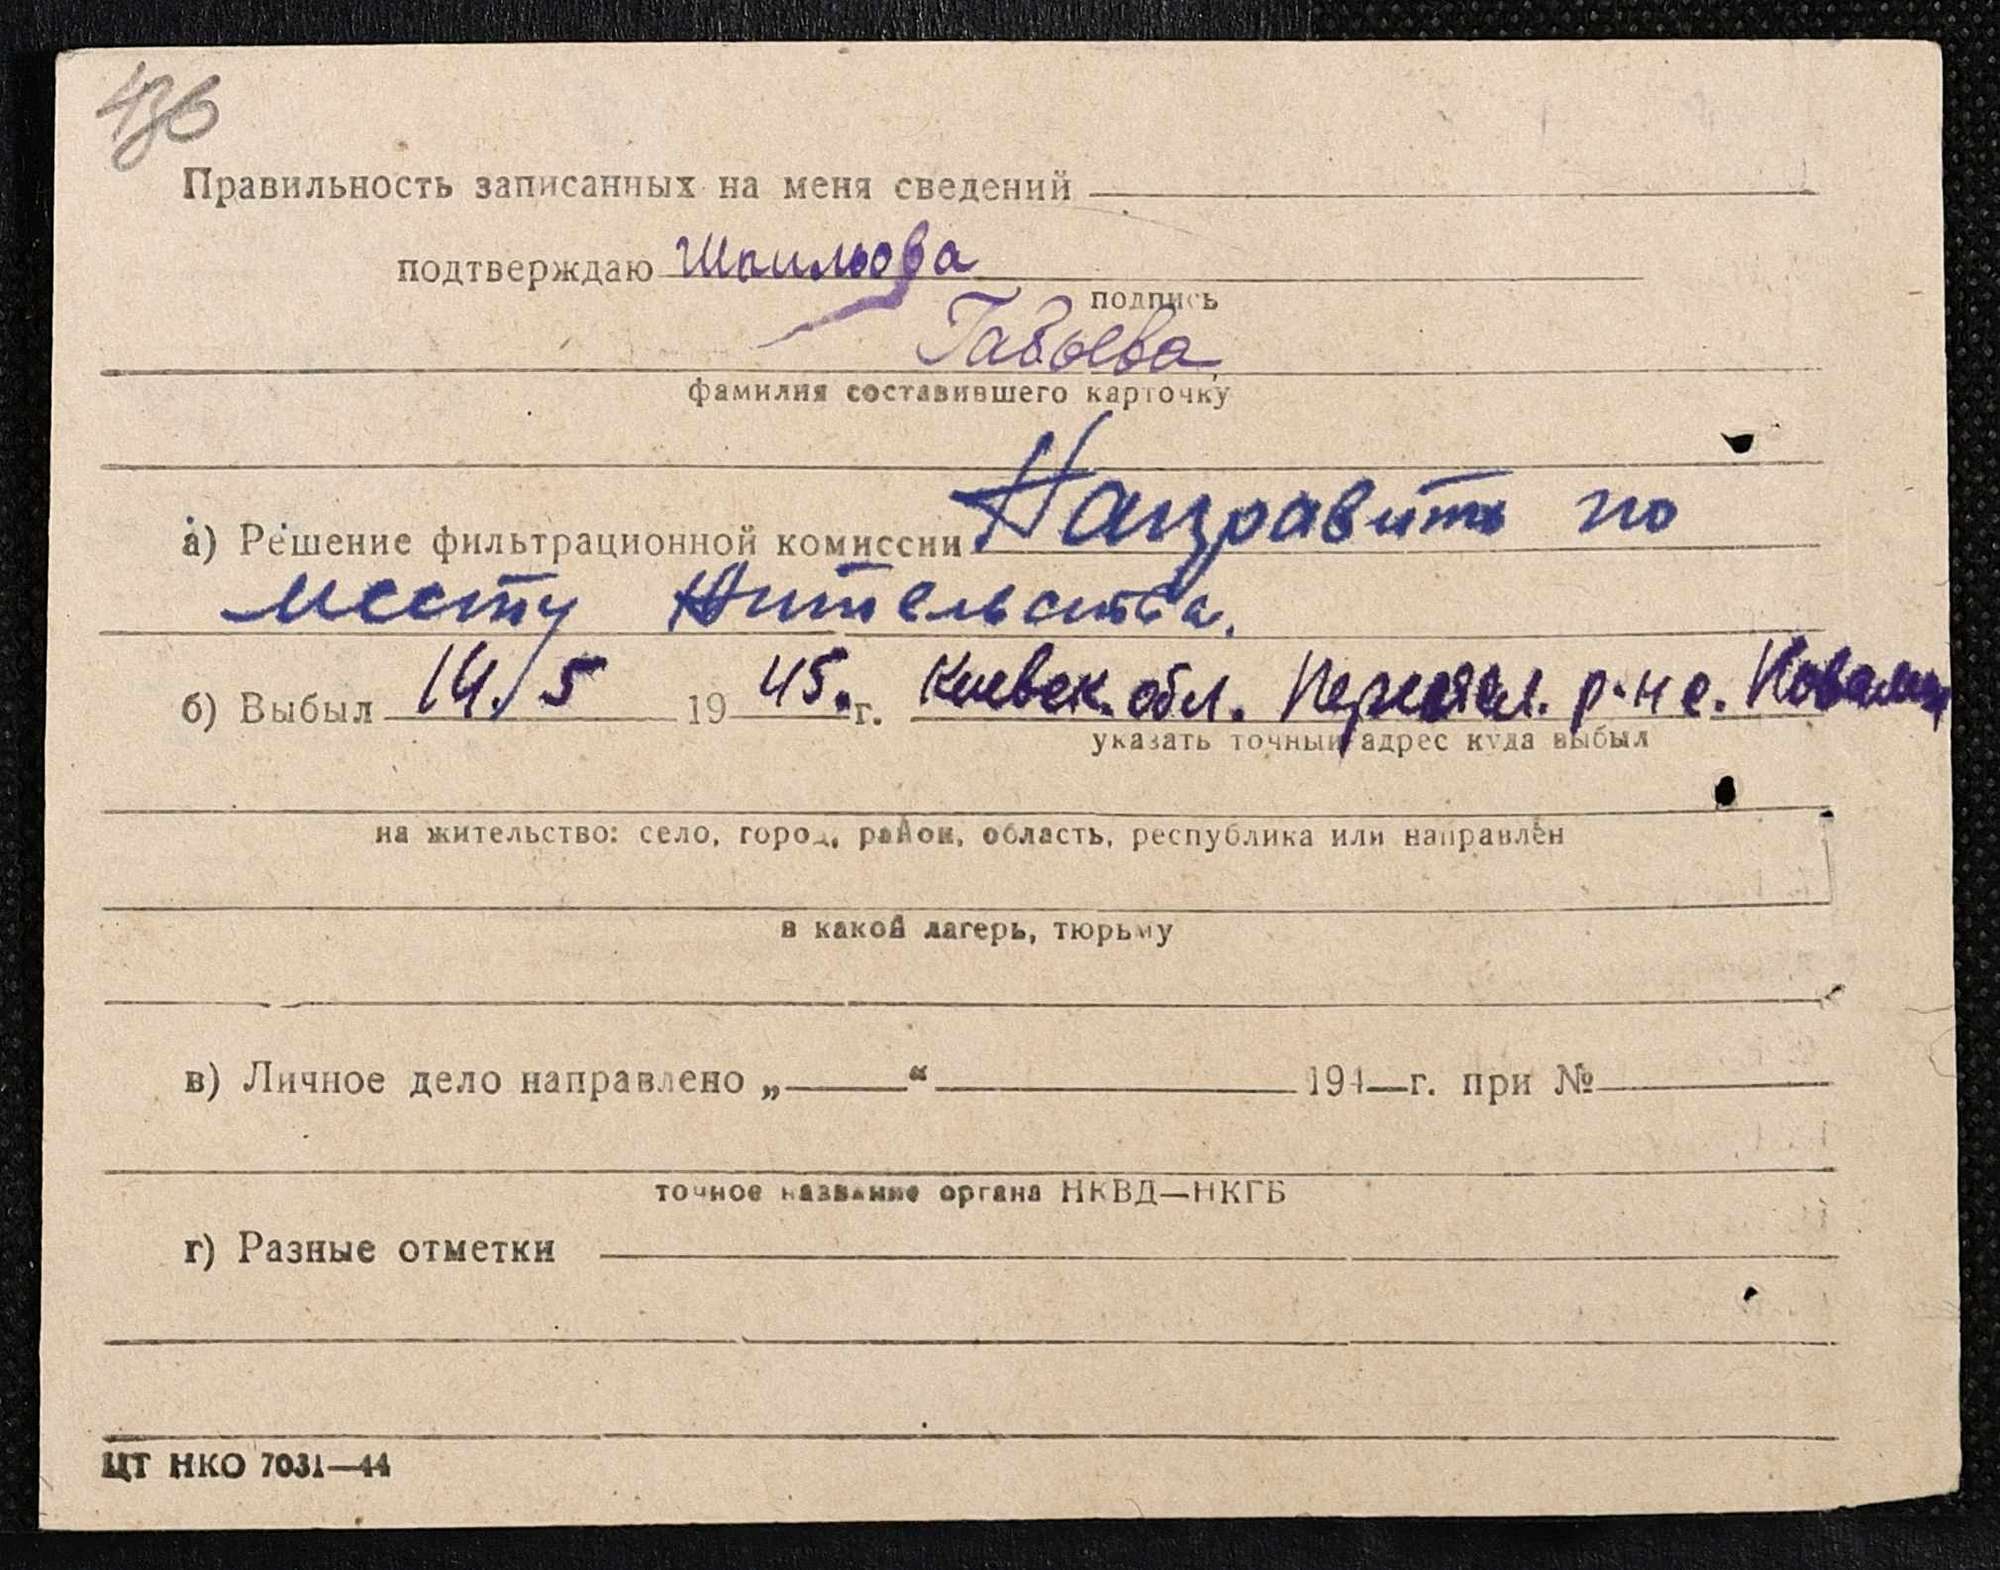 436
Правильность записанных на меня сведений
подтверждаю Шпильова
подпись
Габоева
фамилия составившего карточку
а) Решение фильтрационной комиссии Направить по
месту жительства.
б) Выбыл 14/5 1945. г. Киевск. обл. Переясл. р-н с. Ковалин
указать точный адрес куда выбыл
на жительство: село, город, район, область, республика или направлен
в какой лагерь, тюрьму
в) Личное дело направлено „ “ 194 г. при №
точное название органа НКВД—НКГБ
г) Разные отметки
ЦТ НКО 7031—44